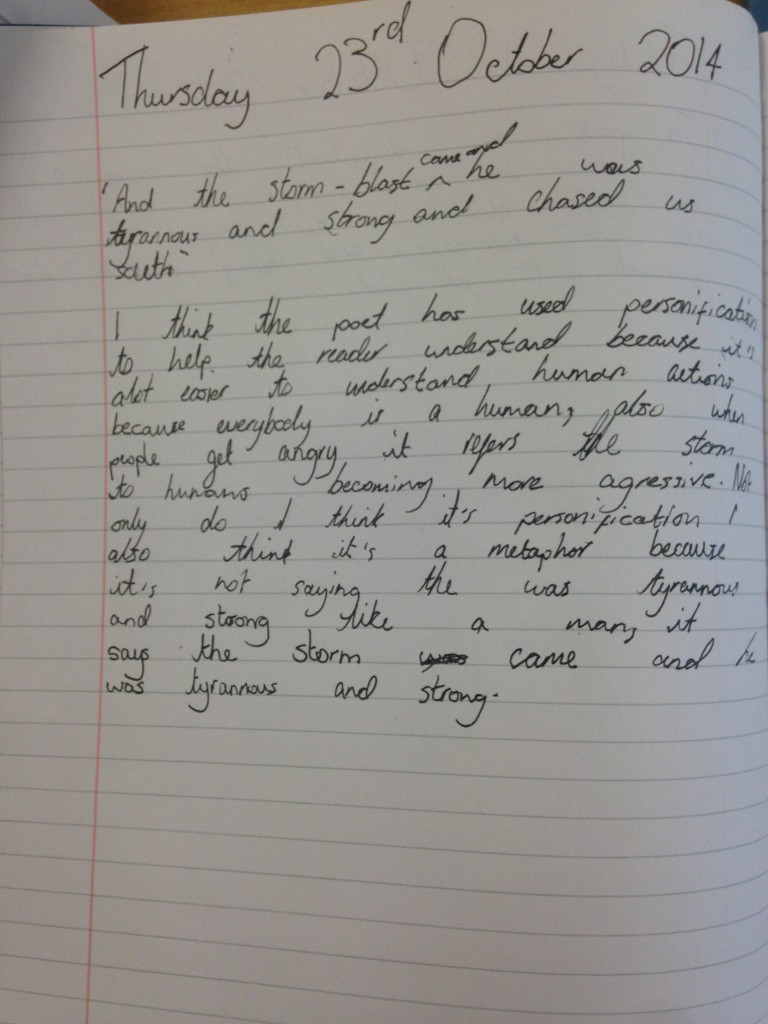 Thursday 23rd October 2014
'And the storm-blast ^ came and he was
tyrannous and strong and chased us
south"
I think the poet has used personification
to help the reader understand because it's
alot easier to understand human actions
because everybody is a human, also when
people get angry it refers the storm
to humans becoming more agressive. Not
only do I think it's personification I
also think it's a metaphor because
it's not saying the was tyrannous
and strong like a man, it
says the storm was came and he
was tyrannous and strong.